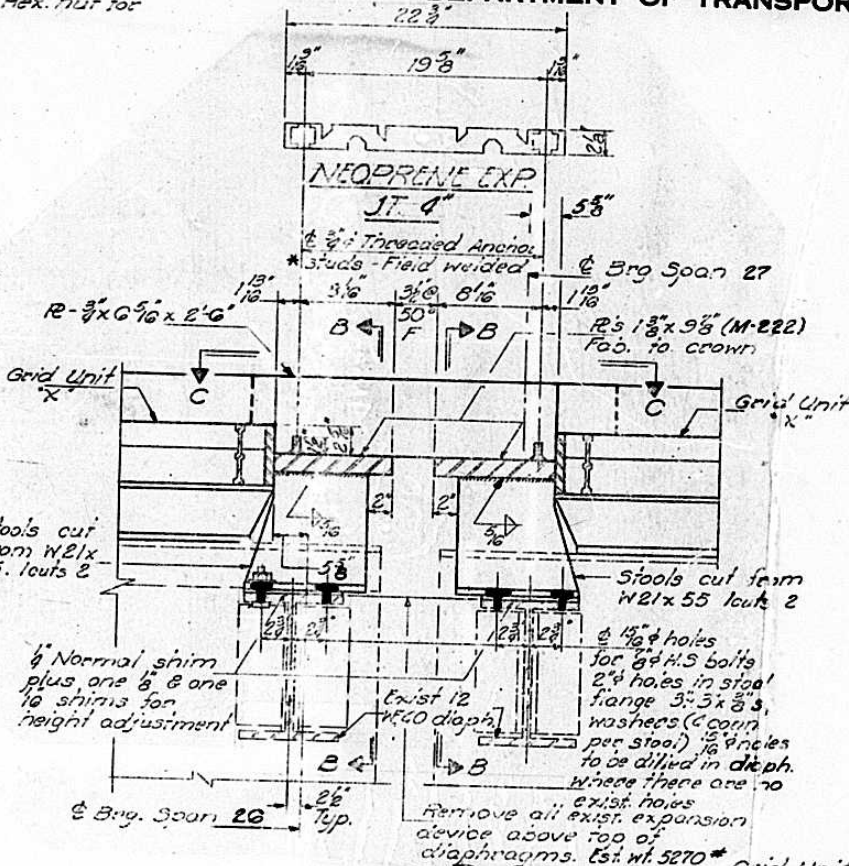 Hex. nut for
DEPARTMENT OF TRANSPOR
22 3/4"
1 9/16"
19 5/8"
1 9/16"
NEOPRENE EXP.
JT. 4"
5 5/8"
℄ 3/4"φ Threaded Anchor
* studs - Field welded
℄ Brg Span 27
1 13/16
3 1/2 @
50°
F
8 1/16"
1 13/16"
℞ - 3/4" x 6 5/16 x 2'-6"
℞'s 1 3/8" x 9 7/8" (M-222)
Fab. to crown
B
B
Grid Unit
"X"
C
C
Grid Unit
"X"
2"
2"
5/16
5/16
5 5/8"
Stools cut
from W21x
1cuts 2
Stools cut from
W21x55 1cuts 2
2 3/4"
2 3/4"
2 3/4"
2 3/4"
1/4" Normal shim
plus one 1/8" & one
1/16" shims for
height adjustment
Exist 12
WF40 diaph.
℄ 15/16"φ holes
for 7/8"φ H.S bolts
2"φ holes in stool
flange 3"x3x3/8"s,
washers. (
per stool) 15/16"φ holes
to be drilled in diaph.
where there are no
exist. holes
B
B
℄ Brg. Span 26
2 1/2"
Typ.
Remove all exist. expansion
device above top of
diaphragms. Est. wt. 5270 #
Grid Unit